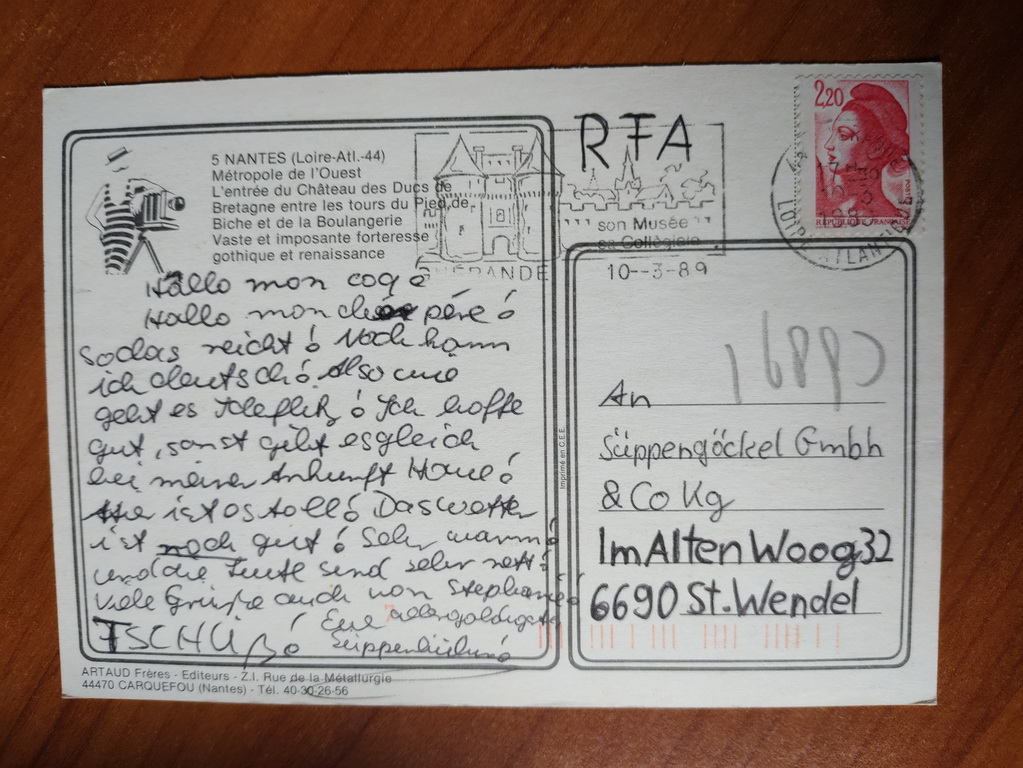 5 NANTES (Loire-Atl.-44)
Métropole de l'Ouest
L'entrée du Château des Ducs de
Bretagne entre les tours du Pied de
Biche et de la Boulangerie
Vaste et imposante forteresse
gothique et renaissance
RFA
2,20
REPUBLIQUE FRANÇAISE
GUÉRANDE
son Musée
sa Collégiale
10--3-89
Hallo mon coq
Hallo mon père
sodas reicht! Noch kann
ich deutsch! Also wie
geht es! Ich hoffe
gut, sonst gibt es gleich
bei meiner Ankunft Haue!
Hier ist es toll! Das Wetter
ist noch gut! Sehr warm!
und die Leute sind sehr nett!
Viele Grüße auch von Stephanie!
TSCHÜß! Eure allergoldigste
Süppenhühn
Imprimé en C.E.E.
16890
An
Süppengöckel Gmbh
& Co Kg
Im Alten Woog 32
6690 St. Wendel
ARTAUD Frères - Editeurs - Z.I. Rue de la Métallurgie
44470 CARQUEFOU (Nantes) - Tél. 40-30-26-56